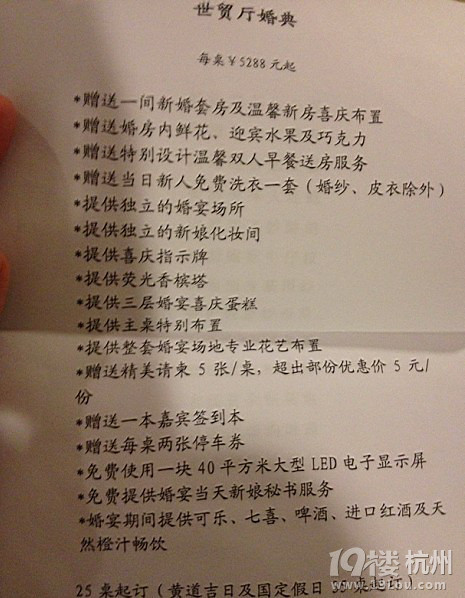 世贸厅婚典
每桌￥5288元起
*赠送一间新婚套房及温馨新房喜庆布置
*赠送婚房内鲜花、迎宾水果及巧克力
*赠送特别设计温馨双人早餐送房服务
*赠送当日新人免费洗衣一套（婚纱、皮衣除外）
*提供独立的婚宴场所
*提供独立的新娘化妆间
*提供喜庆指示牌
*提供荧光香槟塔
*提供三层婚宴喜庆蛋糕
*提供主桌特别布置
*提供整套婚宴场地专业花艺布置
*赠送精美请柬 5 张/桌，超出部份优惠价 5 元/
份
*赠送一本嘉宾签到本
*赠送每桌两张停车券
*免费使用一块 40 平方米大型 LED 电子显示屏
*免费提供婚宴当天新娘秘书服务
*婚宴期间提供可乐、七喜、啤酒、进口红酒及天
然橙汁畅饮
25 桌起订（黄道吉日及国定假日 35 桌起订）
19楼杭州
www.19lou.com